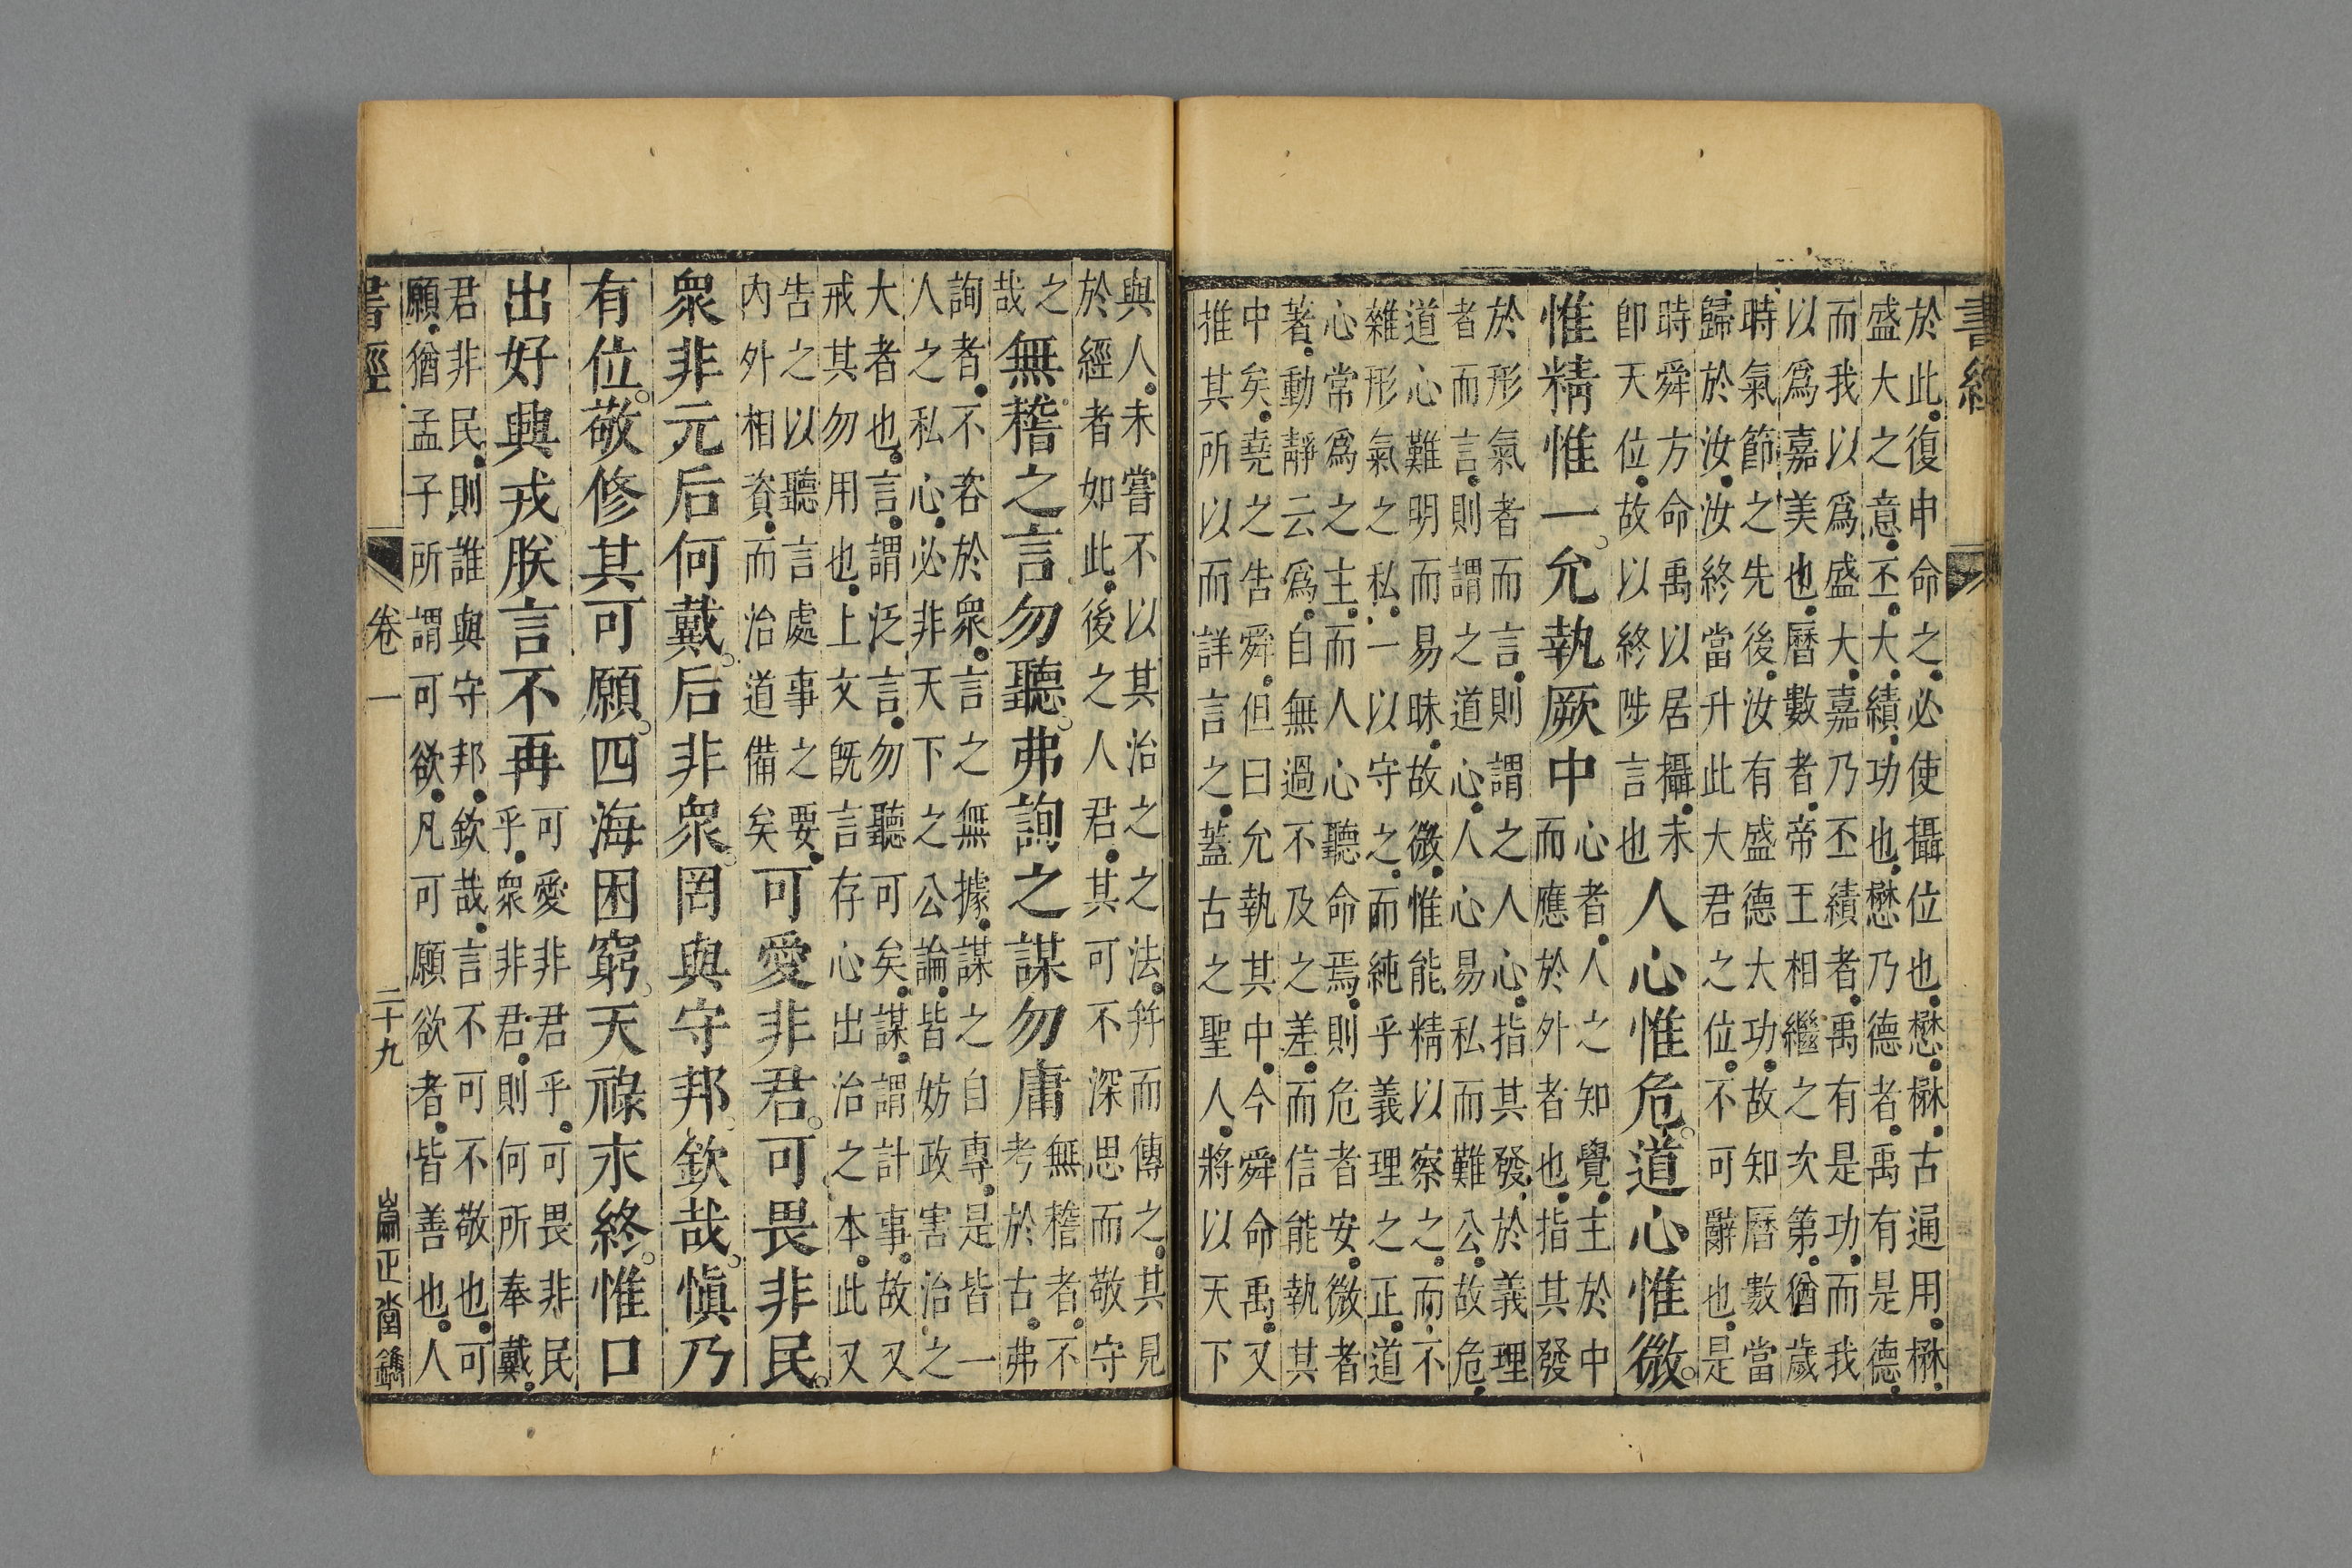 書經
於此復申命之必使攝位也懋楙古通用楙
盛大之意丕大績功也懋乃德者禹有是德
而我以爲盛大嘉乃丕績者禹有是功而我
以爲嘉美也曆數者帝王相繼之次第猶歲
時氣節之先後汝有盛德大功故知曆數當
歸於汝汝終當升此大君之位不可辭也是
時舜方命禹以居攝未
卽天位故以終陟言也
人心惟危道心惟微
惟精惟一允執厥中
心者人之知覺主於中
而應於外者也指其發
於形氣者而言則謂之人心指其發於義理
者而言則謂之道心人心易私而難公故危
道心難明而易昧故微惟能精以察之而不
雜形氣之私一以守之而純乎義理之正道
心常爲之主而人心聽命焉則危者安微者
著動靜云爲自無過不及之差而信能執其
中矣堯之告舜但曰允執其中今舜命禹又
推其所以而詳言之蓋古之聖人將以天下
與人未嘗不以其治之之法并而傳之其見
於經者如此後之人君其可不深思而敬守
之
哉
無稽之言勿聽弗詢之謀勿庸
無稽者不
考於古弗
詢者不咨於衆言之無據謀之自專是皆一
人之私心必非天下之公論皆妨政害治之
大者也言謂泛言勿聽可矣謀謂計事故又
戒其勿用也上文旣言存心出治之本此又
告之以聽言處事之要
內外相資而治道備矣
可愛非君可畏非民
衆非元后何戴后非衆罔與守邦欽哉愼乃
有位敬修其可願四海困窮天祿永終惟口
出好興戎朕言不再
可愛非君乎可畏非民
乎衆非君則何所奉戴
君非民則誰與守邦欽哉言不可不敬也可
願猶孟子所謂可欲凡可願欲者皆善也人
書經 卷一 二十九 崇正堂鐫